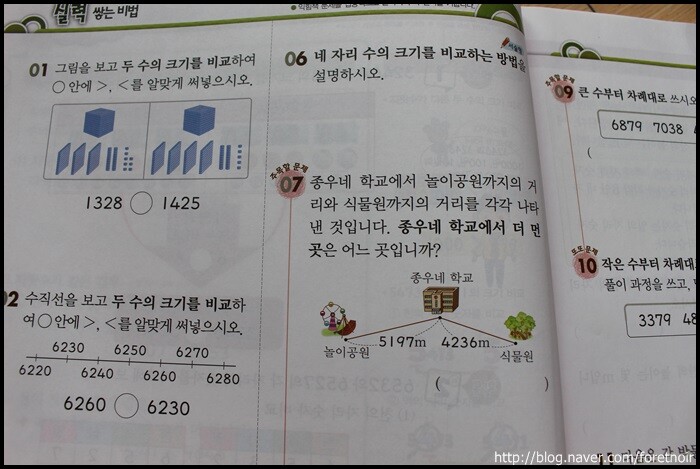 실력 쌓는 비법
01 그림을 보고 두 수의 크기를 비교하여
○ 안에 >, <를 알맞게 써넣으시오.
1328 ○ 1425
02 수직선을 보고 두 수의 크기를 비교하
여 ○ 안에 >, <를 알맞게 써넣으시오.
6230 6250 6270
6220 6240 6260 6280
6260 ○ 6230
서술형
06 네 자리 수의 크기를 비교하는 방법을
설명하시오.
주목할 문제
07 종우네 학교에서 놀이공원까지의 거
리와 식물원까지의 거리를 각각 나타
낸 것입니다. 종우네 학교에서 더 먼
곳은 어느 곳입니까?
종우네 학교
5197m 4236m
놀이공원 식물원
( )
주목할 문제
09 큰 수부터 차례대로 쓰시오
6879 7038
(
또또 문제
10 작은 수부터 차례대로
풀이 과정을 쓰고,
3379 48
http://blog.naver.com/foretnoir